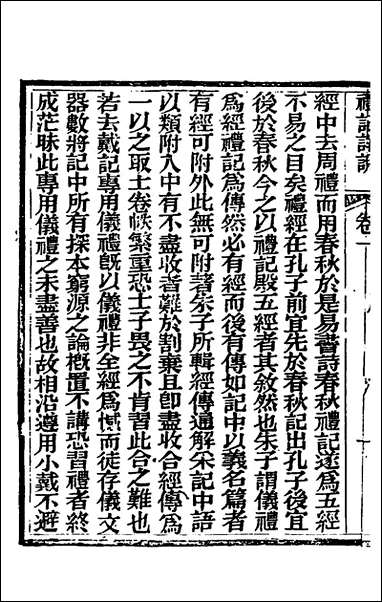 禮記詳說 卷一
經中去周禮而用春秋於是易書詩春秋禮記遂為五經
不易之目矣禮經在孔子前宜先於春秋記出孔子後宜
後於春秋今之以禮記殿五經者其敘然也朱子謂儀禮
為經禮記為傳然必有經而後有傳如記中以義名篇者
有經可附外此無可附著朱子所輯經傳通解采記中語
以類附入中有不盡收者難於割棄且卽盡收合經傳為
一以之取士卷帙繁重恐士子畏之不肯習此合之難也
若去戴記專用儀禮旣以儀禮非全經為憾而徒存儀文
器數將記中所有探本窮源之論槪置不講恐習禮者終
成茫昧此專用儀禮之未盡善也故相沿遵用小戴不避